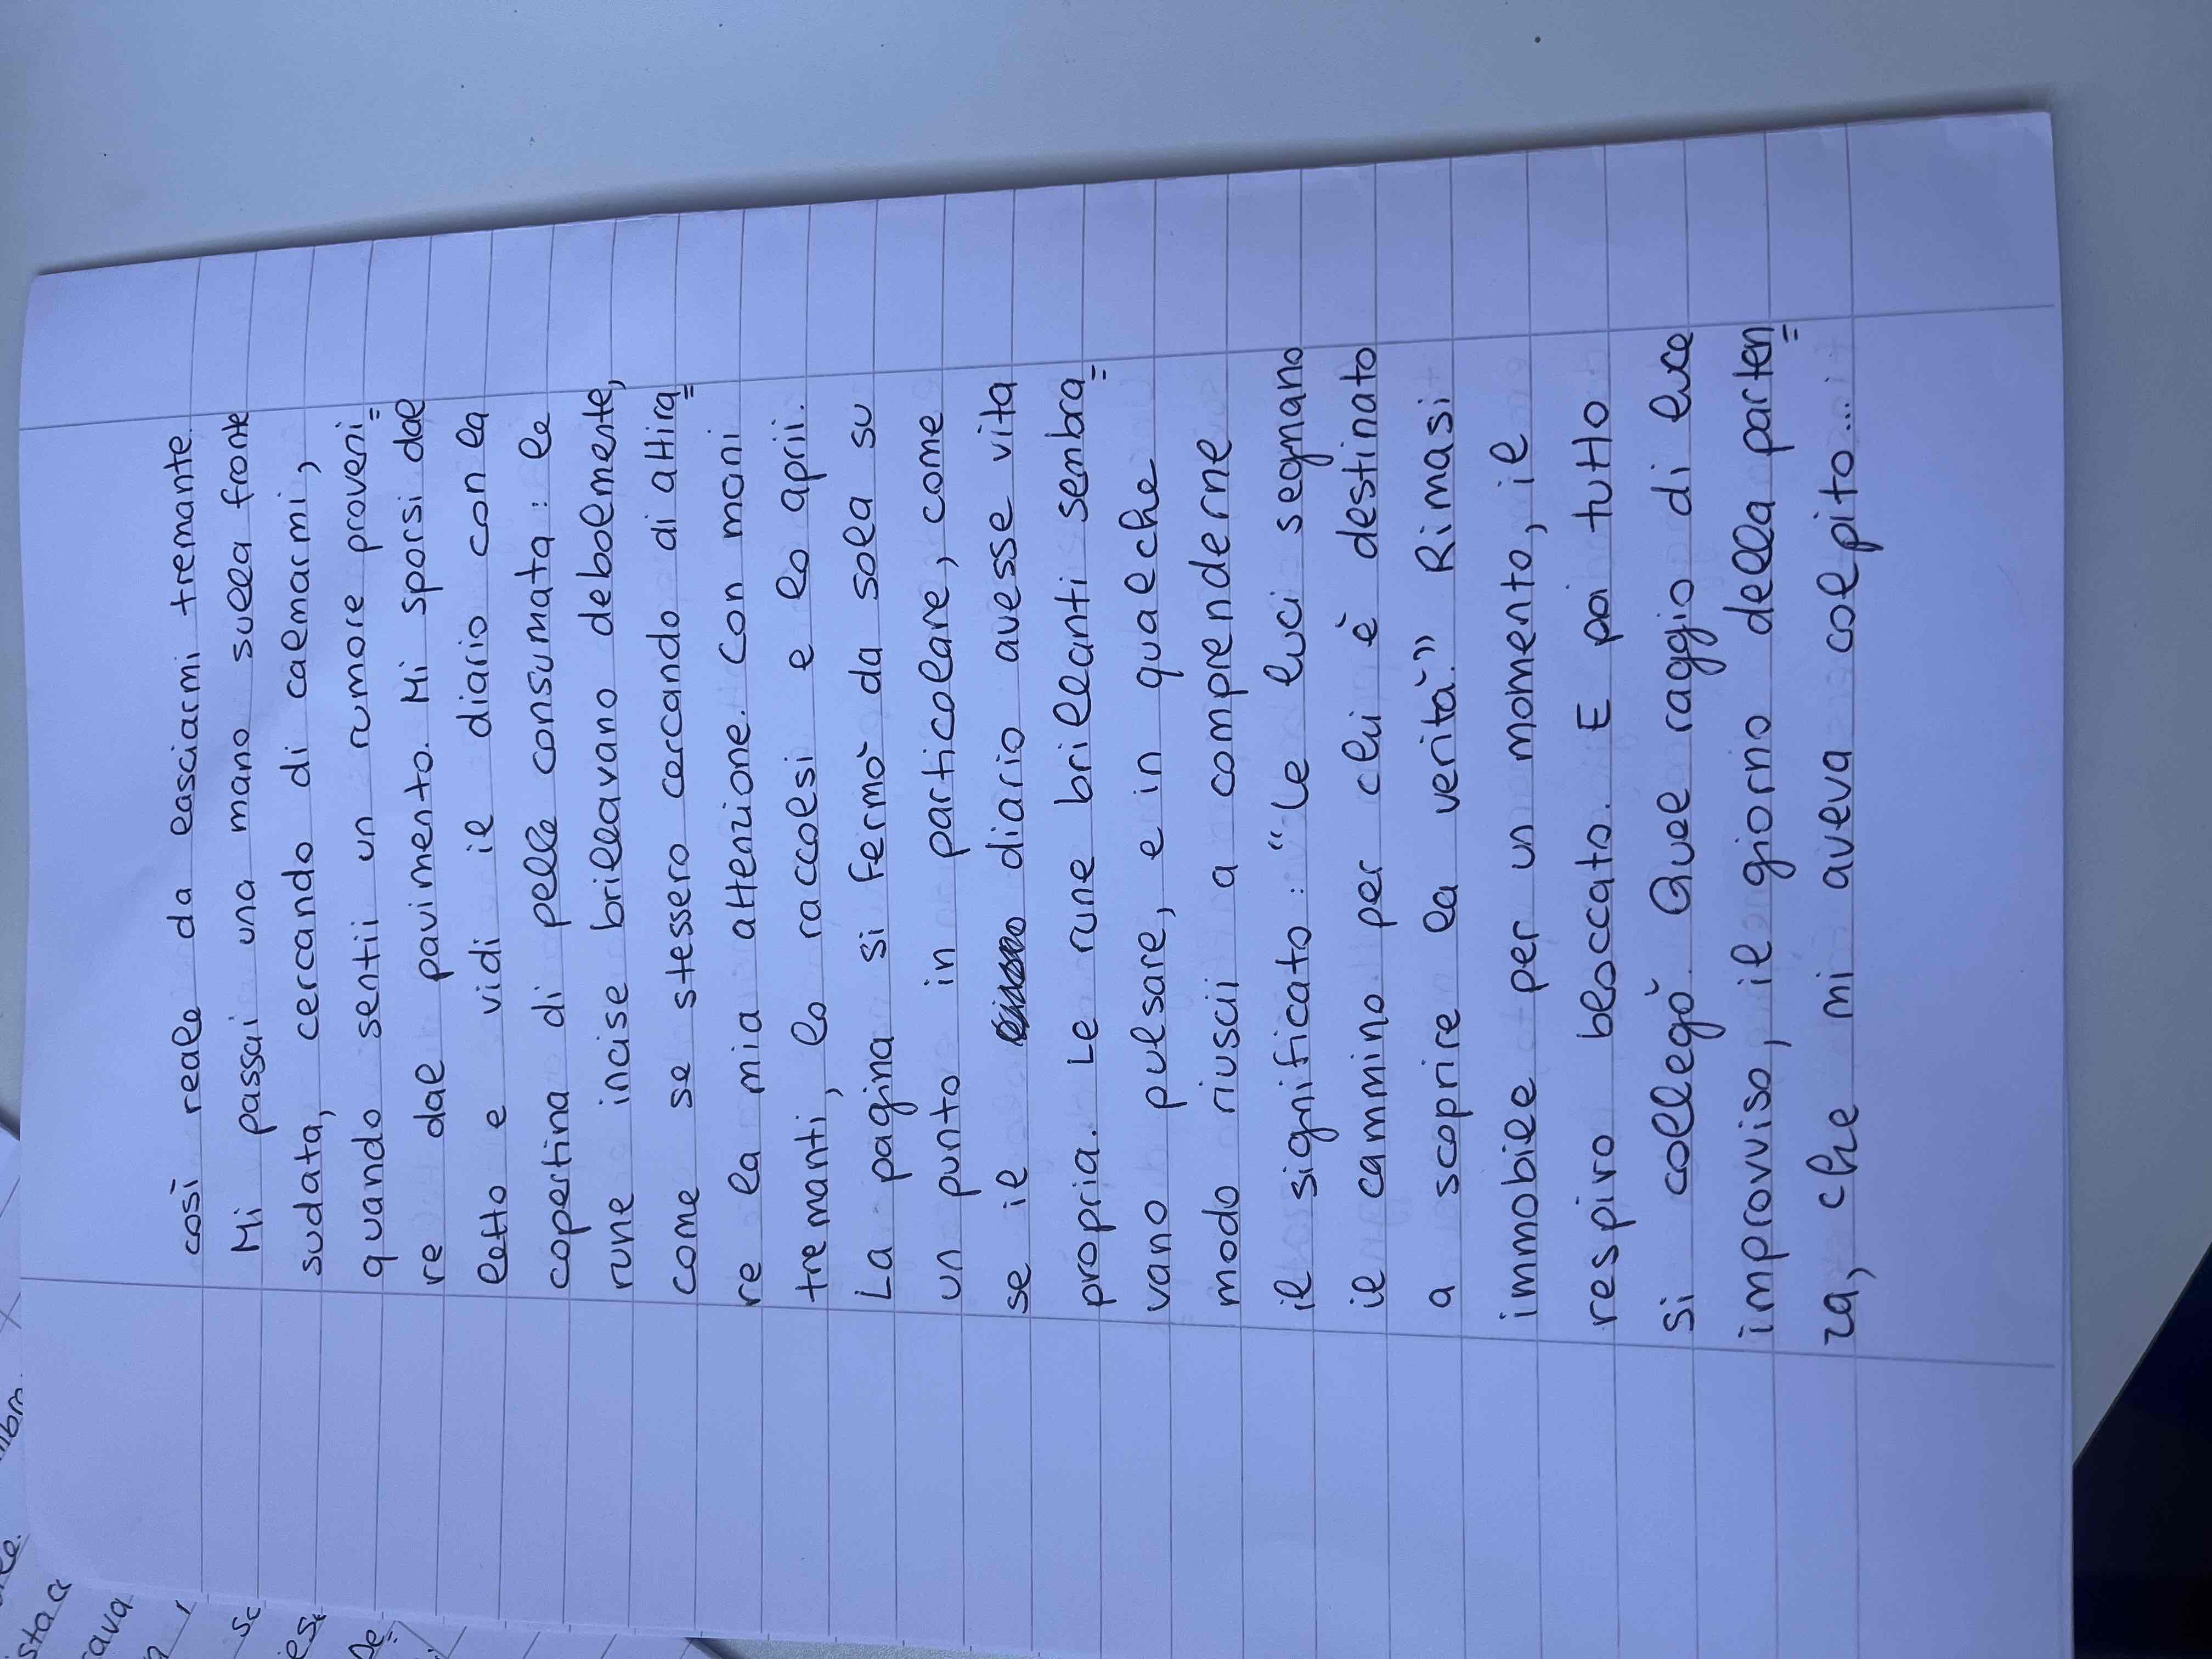 così reale da lasciarmi tremante.
Mi passai una mano sulla fronte
sudata, cercando di calmarmi,
quando sentii un rumore proveni=
re dal pavimento. Mi sporsi dal
letto e vidi il diario con la
copertina di pelle consumata: le
rune incise brillavano debolmente,
come se stessero cercando di attira=
re la mia attenzione. Con mani
tremanti, lo raccolsi e lo aprii.
La pagina si fermò da sola su
un punto in particolare, come
se il diario avesse vita
propria. Le rune brillanti sembra=
vano pulsare, e in qualche
modo riuscii a comprenderne
il significato: “Le luci segnano
il cammino per chi è destinato
a scoprire la verità.” Rimasi
immobile per un momento, il
respiro bloccato. E poi tutto
si collegò. Quel raggio di luce
improvviso, il giorno della parten=
za, che mi aveva colpito...